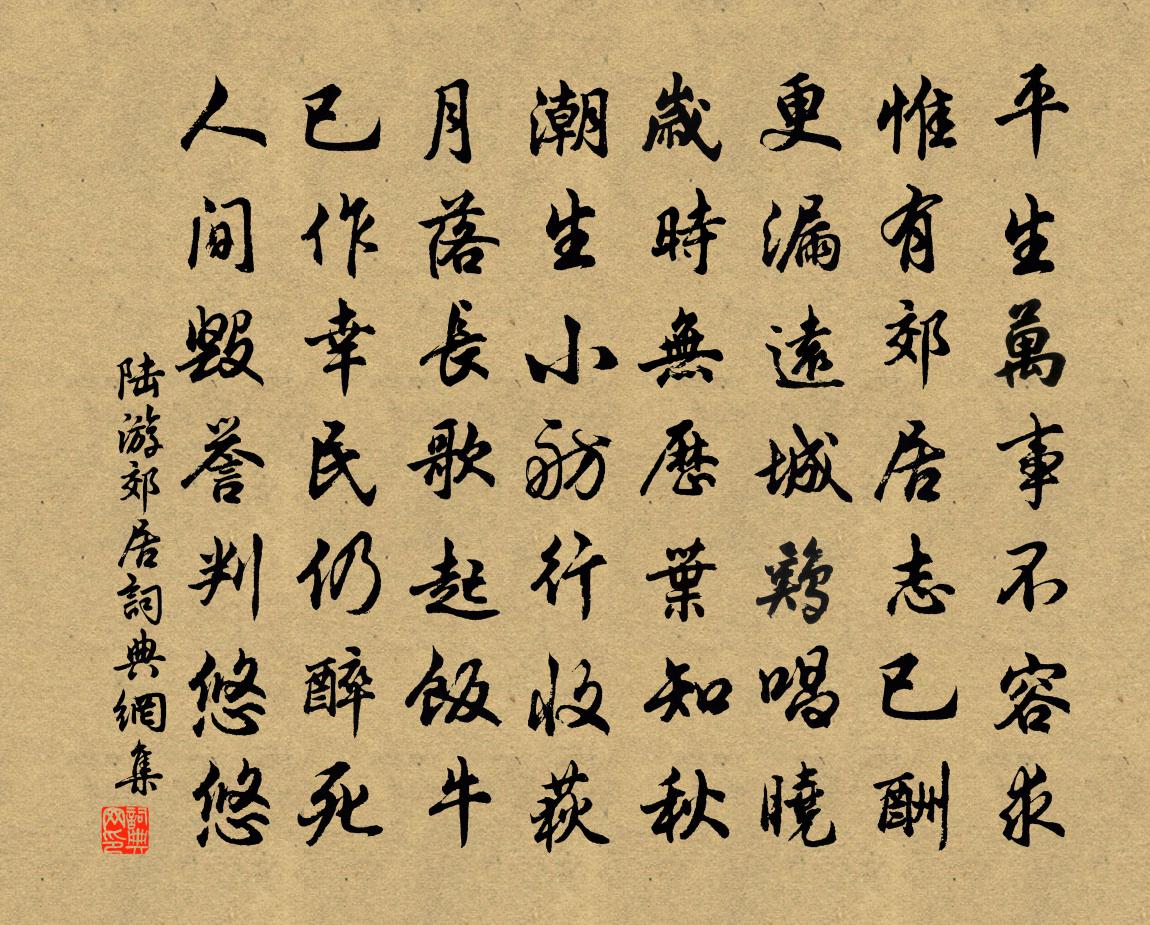 平生萬事不容求
惟有郊居志已酬
更漏遠城鷄唱曉
歲時無曆葉知秋
潮生小舫行收荻
月落長歌起飯牛
已作幸民仍醉死
人間毀譽判悠悠
陆游郊居詞典網集
詞典网印